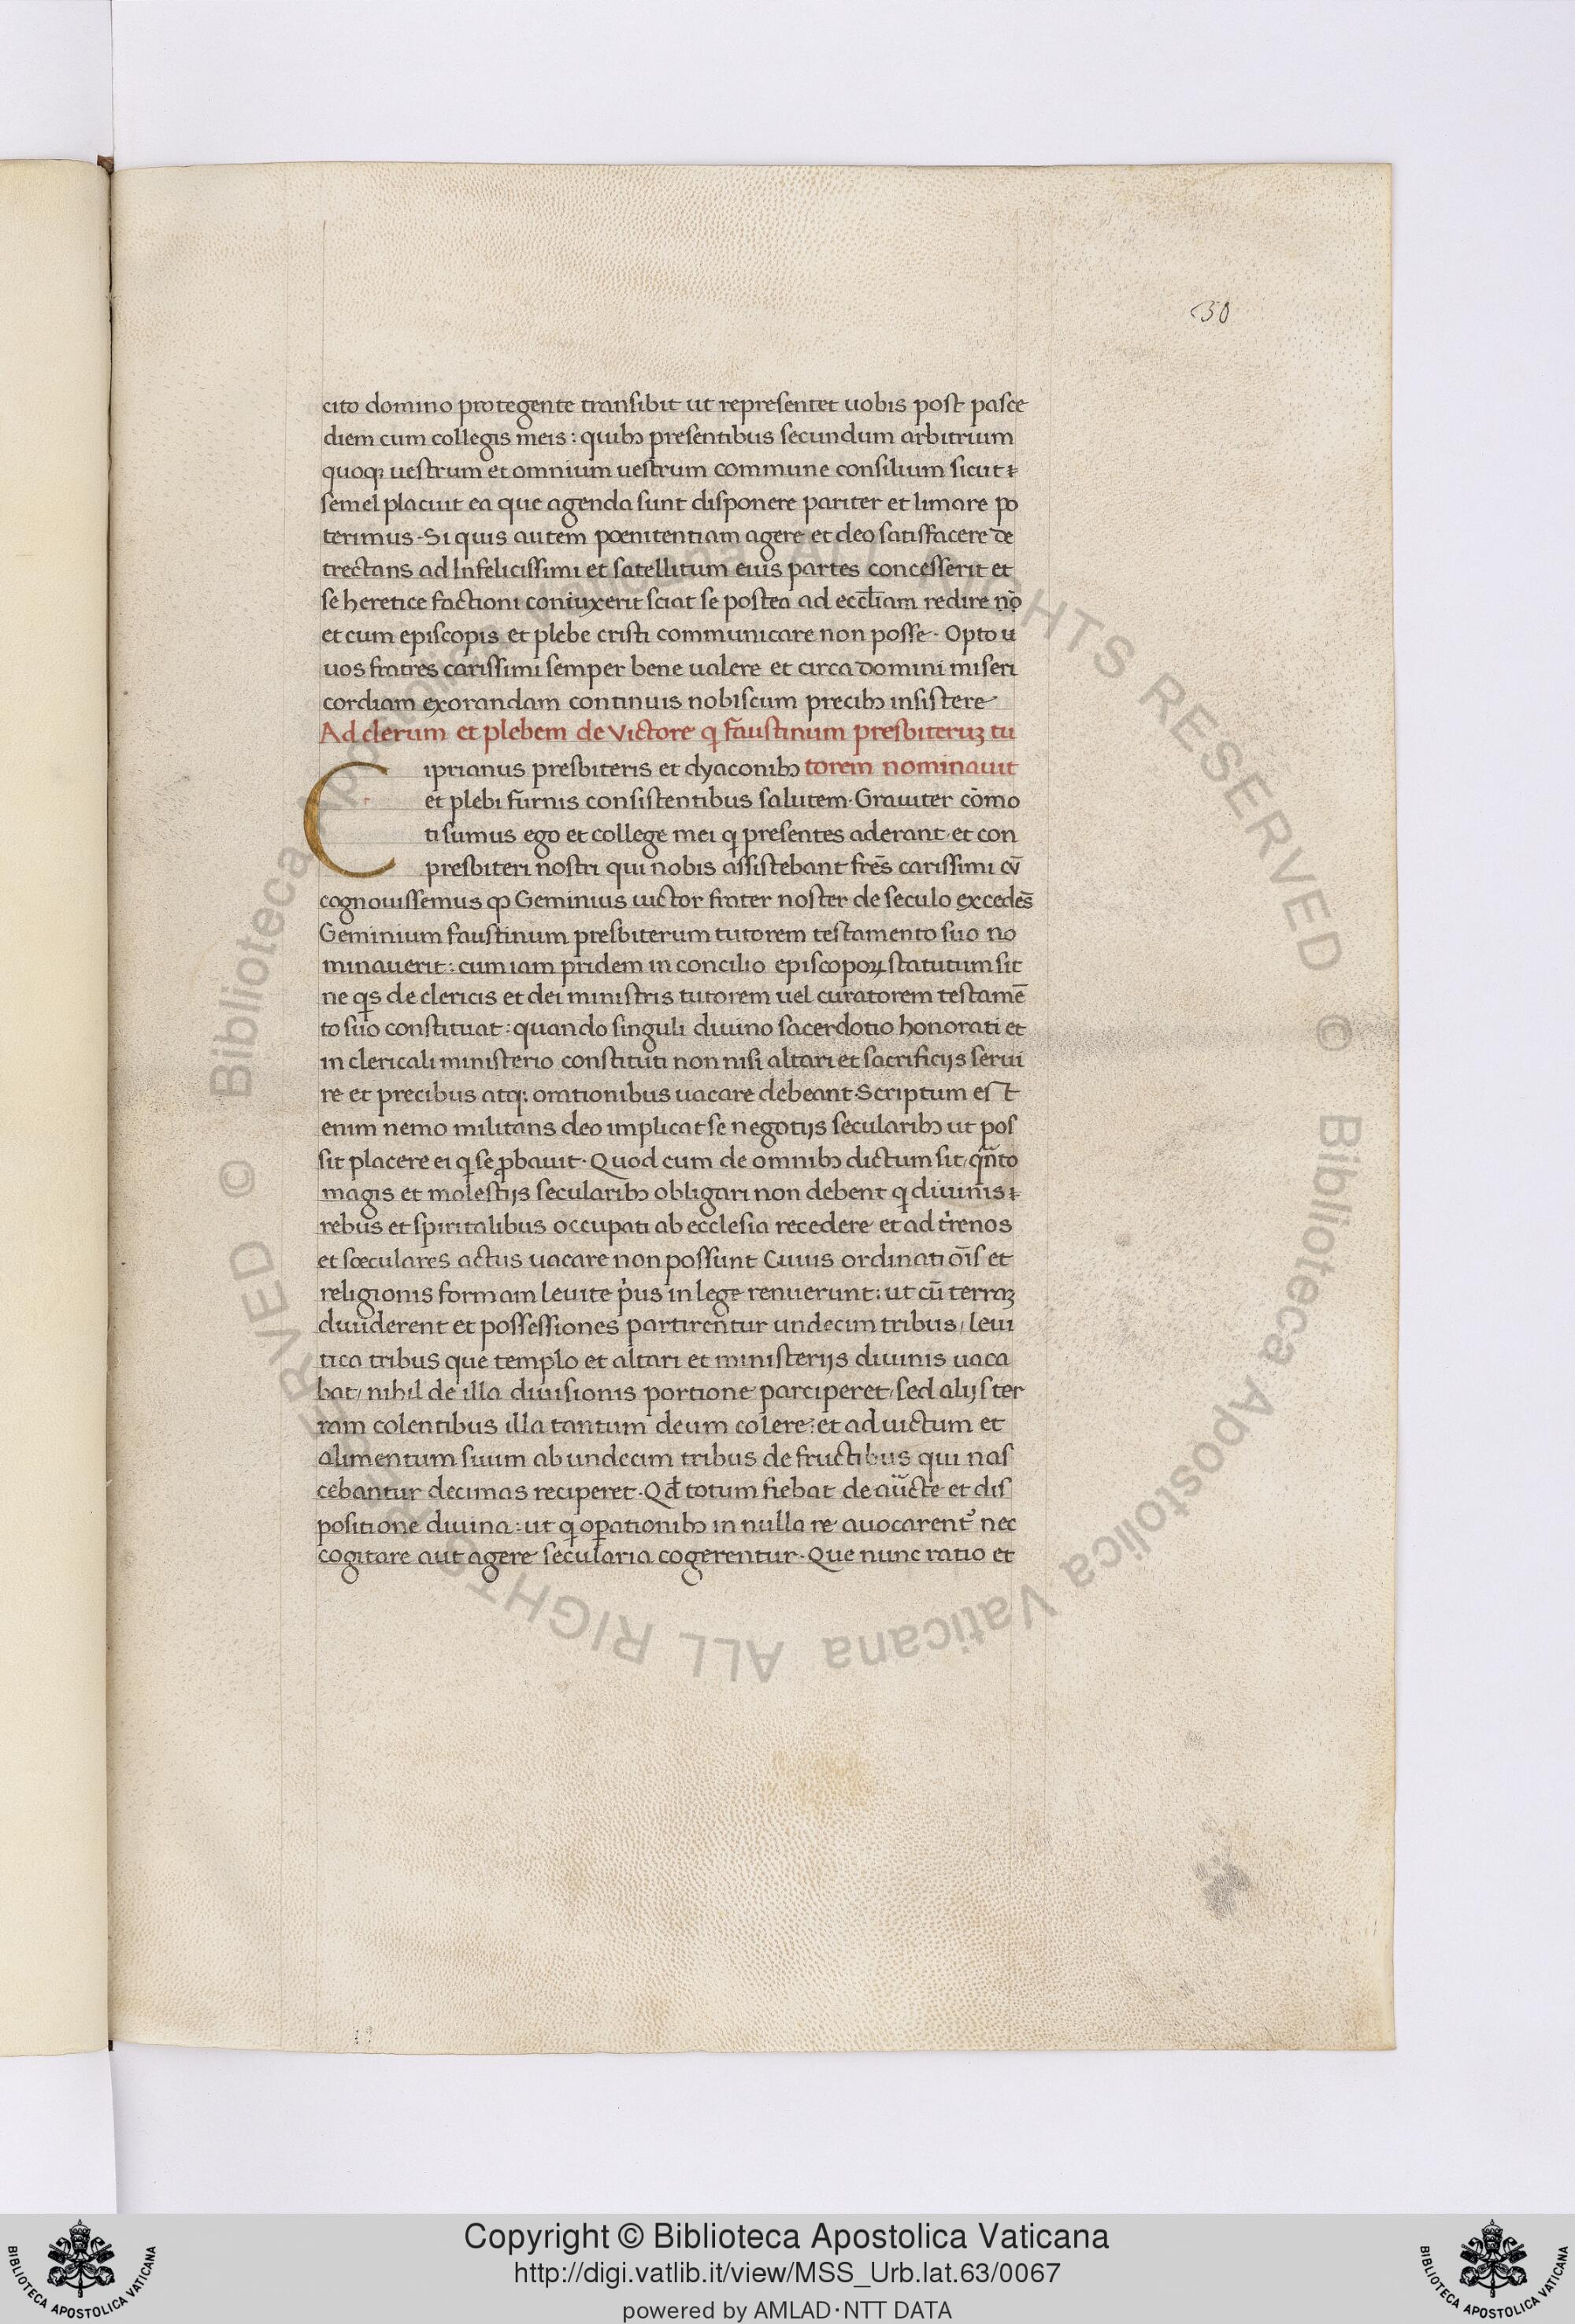 50
cito domino protegente transibit ut representet uobis post pasce
diem cum collegis meis : quibꝫ presentibus secundum arbitrium
quoqꝫ uestrum et omnium uestrum commune consilium sicut ⁊
semel placuit ea que agenda sunt disponere pariter et limare po
terimus · Si quis autem poenitentiam agere et deo satisfacere de
trectans ad Infelicissimi et satellitum eius partes concesserit et
se heretice factioni coniuxerit sciat se postea ad eccl̄iam redire nō
et cum episcopis et plebe cristi communicare non posse · Opto u
uos fratres carissimi semper bene ualere et circa domini miseri
cordiam exorandam continuis nobiscum precibꝫ insistere
Ad clerum et plebem de Victore q faustinum presbiteruꝫ tu
Ciprianus presbiteris et dyaconibꝫ torem nominauit
et plebi furnis consistentibus salutem · Grauiter cōmo
ti sumus ego et college mei q presentes aderant et con
presbiteri nostri qui nobis assistebant frēs carissimi cū
cognouissemus ꝙ Geminius uictor frater noster de seculo excedēs
Geminium faustinum presbiterum tutorem testamento suo no
minauerit : cum iam pridem in concilio episcopoꝝ statutum sit
ne qs de clericis et dei ministris tutorem uel curatorem testamē
to suo constituat : quando singuli diuino sacerdotio honorati et
in clericali ministerio constituti non nisi altari et sacrificijs serui
re et precibus atqꝫ orationibus uacare debeant · Scriptum est
enim nemo militans deo implicat se negotijs secularibꝫ ut pos
sit placere ei q se ꝓbauit · Quod cum de omnibꝫ dictum sit, qn̄to
magis et molestijs secularibꝫ obligari non debent q diuinis ⁊
rebus et spiritalibus occupati ab ecclesia recedere et ad t'renos
et sœculares actus uacare non possunt Cuius ordinatiōis et
religionis formam leuite p'us in lege renuerunt : ut cū terraꝫ
diuiderent et possessiones partirentur undecim tribus, leui
tica tribus que templo et altari et ministerijs diuinis uaca
bat, nihil de illa diuisionis portione parciperet, sed alijs ter
ram colentibus illa tantum deum colere : et ad uictum et
alimentum suum ab undecim tribus de fructibus qui nas
cebantur decimas reciperet · Qđ totum fiebat de aucte et dis
positione diuina : ut q oꝑationibꝫ in nulla re auocarent' nec
cogitare aut agere secularia cogerentur · Que nunc ratio et
Biblioteca Apostolica Vaticana ALL RIGHTS RESERVED ©
Biblioteca Apostolica Vaticana ALL RIGHTS RESERVED ©
Copyright © Biblioteca Apostolica Vaticana
http://digi.vatlib.it/view/MSS_Urb.lat.63/0067
powered by AMLAD · NTT DATA
BIBLIOTECA APOSTOLICA VATICANA
BIBLIOTECA APOSTOLICA VATICANA